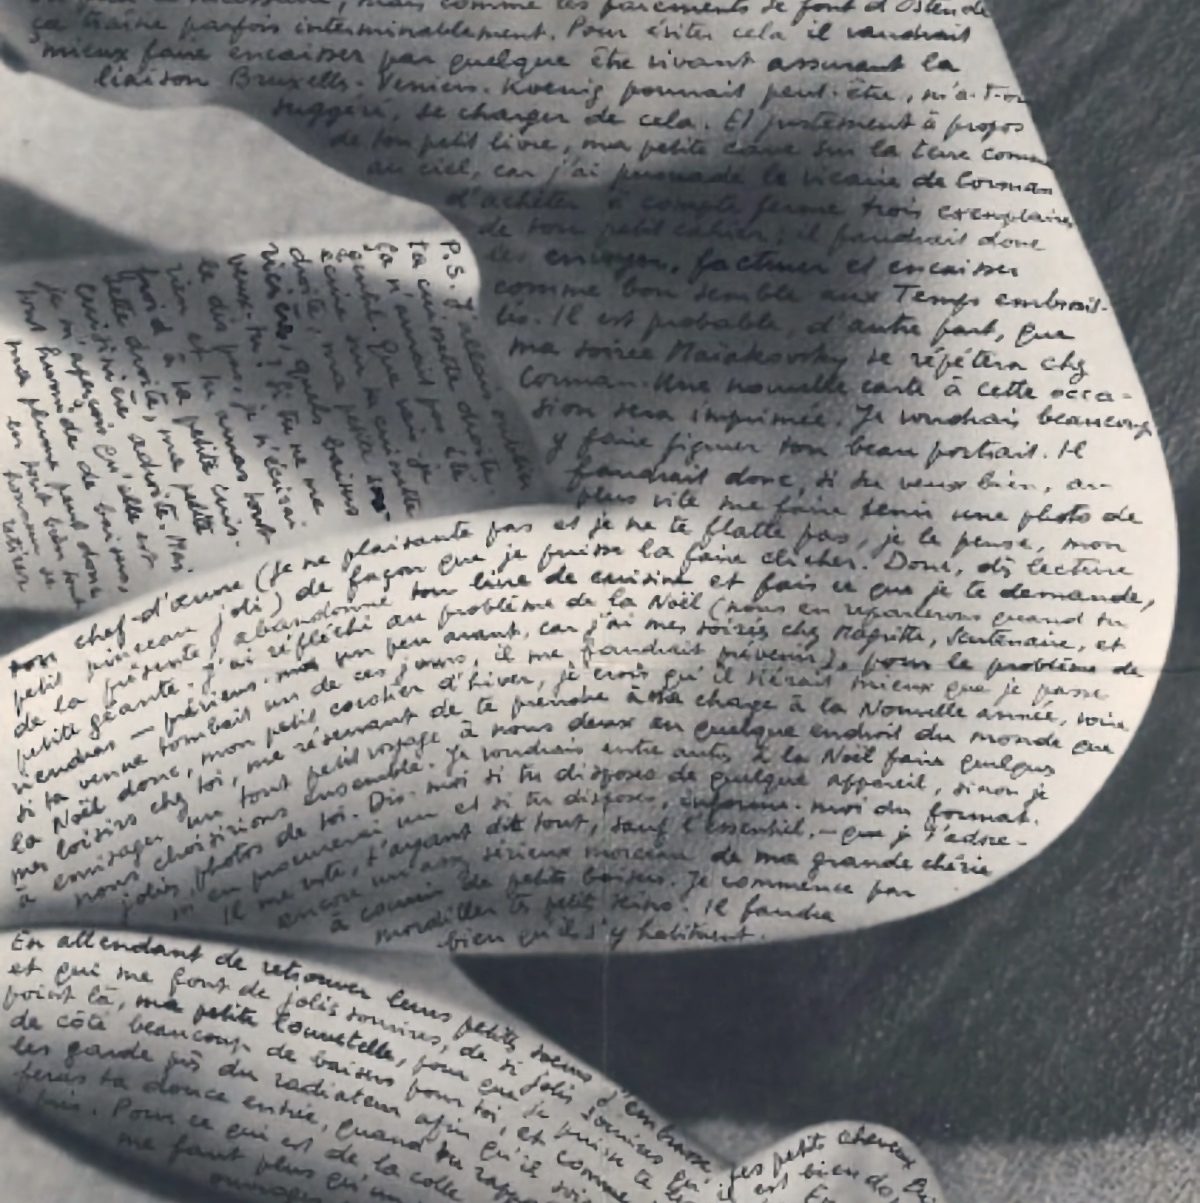 mais comme les paiements se font d'Ostende
ça traîne parfois interminablement. Pour éviter cela il vaudrait
mieux faire encaisser par quelque être vivant assurant la
liaison Bruxelles-Verviers. Koenig pourrait peut-être, m'a-t-on
suggéré, se charger de cela. Et justement à propos
de ton petit livre, ma petite cane sur la terre comme
au ciel, car j'ai persuadé le vicaire de Corman
d'acheter à compte ferme trois exemplaires
de ton petit cahier, il faudrait donc
les envoyer, facturer et encaisser
comme bon semble aux Temps embrouil-
lés. Il est probable, d'autre part, que
ma soirée Maiakovsky se répétera chez
Corman. Une nouvelle carte à cette occa-
sion sera imprimée. Je voudrais beaucoup
y faire figurer ton beau portrait. Il
faudrait donc, si tu veux bien, au
plus vite me faire tenir une photo de
ton chef-d'œuvre (je ne plaisante pas et je ne te flatte pas, je le pense, mon
petit pinceau joli) de façon que je puisse la faire clicher. Donc, dès lecture
de la présente, abandonne ton livre de cuisine et fais ce que je te demande,
petite géante. J'ai réfléchi au problème de la Noël (nous en reparlerons quand tu
viendras — préviens-moi un peu avant, car j'ai mes soirées chez Magritte, Scutenaire, et
si ta venue tombait un de ces jours, il me faudrait prévenir), pour le problème de
la Noël donc, mon petit cosaier d'hiver, je crois qu'il siérait mieux que je passe
mes loisirs chez toi, me réservant de te prendre à ma charge à la Nouvelle année, voire
à envisager un tout petit voyage à nous deux en quelque endroit du monde que
nous choisirions ensemble. Je voudrais entre autres à la Noël faire quelques
jolies photos de toi. Dis-moi si tu disposes de quelque appareil, sinon je
m'en procurerai un et si tu disposes, informe-moi du format.
Il me reste, t'ayant dit tout, sauf l'essentiel, — que je t'adore —
encore un assez sérieux morceau de ma grande chérie
à couvrir de petits baisers. Je commence par
mordiller tes petits seins. Il faudra
bien qu'ils s'y habituent.
P.S. J'allais oublier
ta cuissette droite.
Ça n'aurait pas été
que vais-je
écrire sur ta cuissette
droite, ma petite
quels baisers
veux-tu? Si tu ne me
le dis pas, je n'écrirai
rien et tu auras tout
froid à ta petite cuis-
sette droite, ma petite
cuisinière adroite. Mais
je m'aperçois qu'elle est
tout humide de baisers
ma plume peut donc
en tout bien tout
honneur se
retirer
En attendant de retrouver leurs petits
et qui me font de jolis sourires, de si jolis sourires
point là, ma petite Connetelle, pour que je puisse te
de côté beaucoup de baisers pour toi, et comme
les garde près du radiateur afin qu'ils
feras ta douce entrée, quand tu
Pour ce qui est de la colle
me faut plus qu'un
ouvrages
tes petits cheveux
est bien